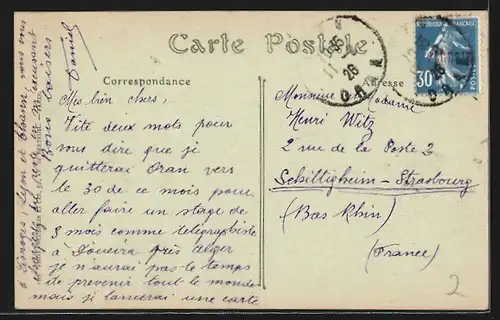 Carte Postale
Correspondance
Adresse
Mes bien chers,
Vite deux mots pour
vous dire que je
quitterai Oran vers
le 30 de ce mois pour
aller faire un stage de
3 mois comme télégraphiste
à Douéira près Alger
je n'aurai pas le temps
de prevenir tout le monde
mais je lancerai une carte
à Limoges, Lyon et
vous
Bons baisers
Daniel
Monsieur Madame
Henri Witz
2 rue de la Poste 2
Schiltigheim - Strasbourg
(Bas Rhin)
(France)
2
30
26